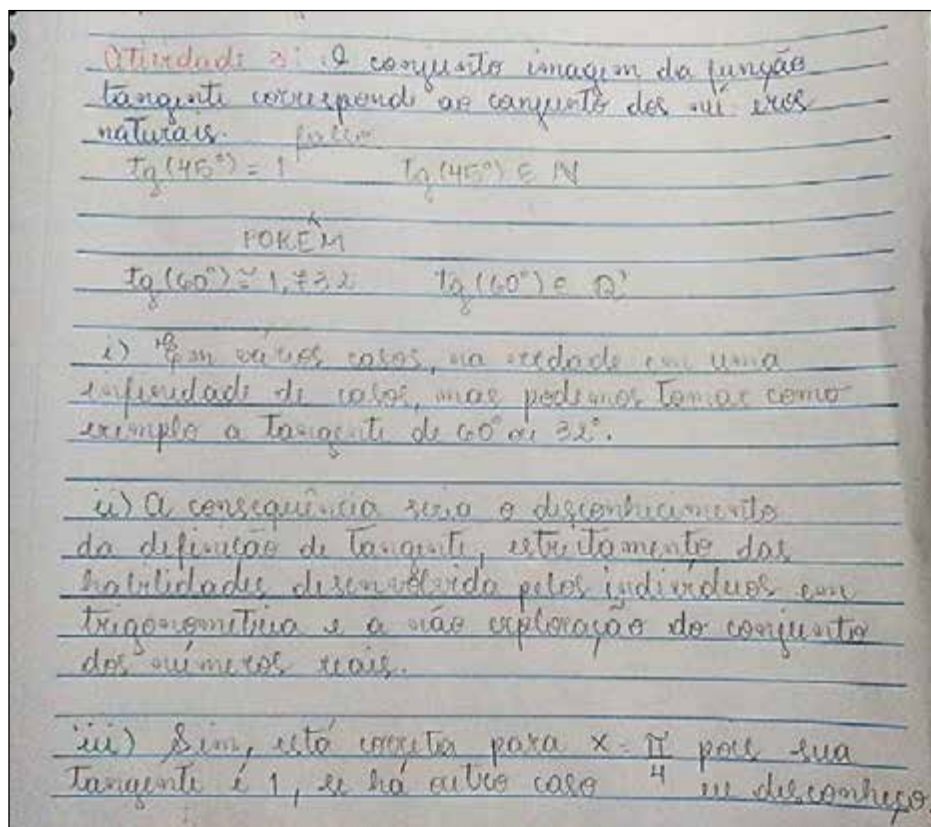 Atividade 3: O conjunto imagem da função
tangente corresponde ao conjunto dos nú eros
naturais. falso
tg(45°) = 1 tg(45°) ∈ N
PORÉM
tg(60°) ≅ 1,732 tg(60°) ∈ Q'
i) Em vários casos, na verdade em uma
infinidade de casos, mas podemos tomar como
exemplo a tangente de 60° ou 32°.
ii) A consequência seria o desconhecimento
da definição de tangente, estreitamento das
habilidades desenvolvida pelos indivíduos em
trigonometria e a não exploração do conjunto
dos números reais.
iii) Sim, está correta para x = π/4 pois sua
tangente é 1, se há outro caso eu desconheço.